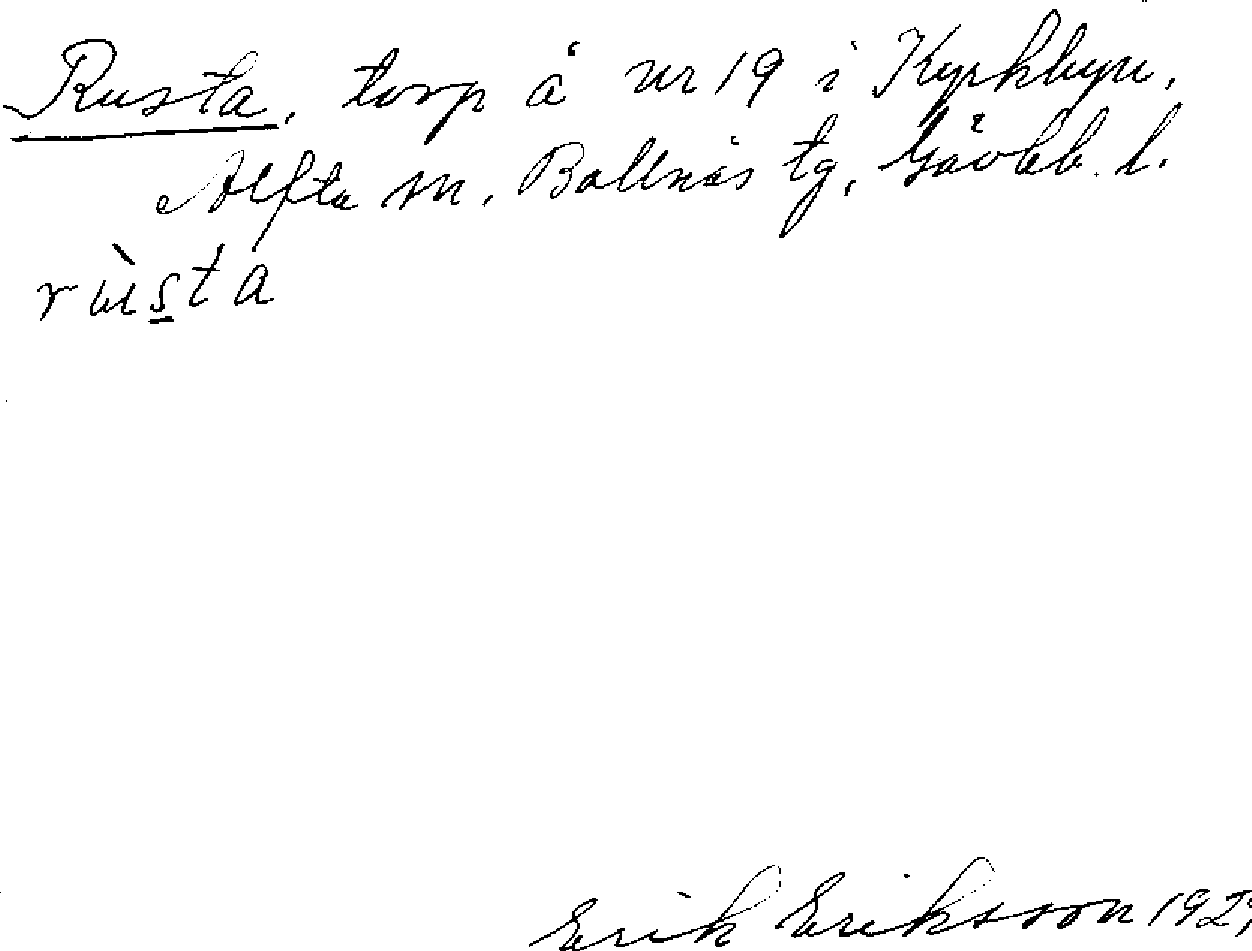 Rusta, torp å nr 19 i Kyrkbyn,
Alfta sn. Bollnäs tg, Gävleb. l.
rùs̲ta
Erik Eriksson